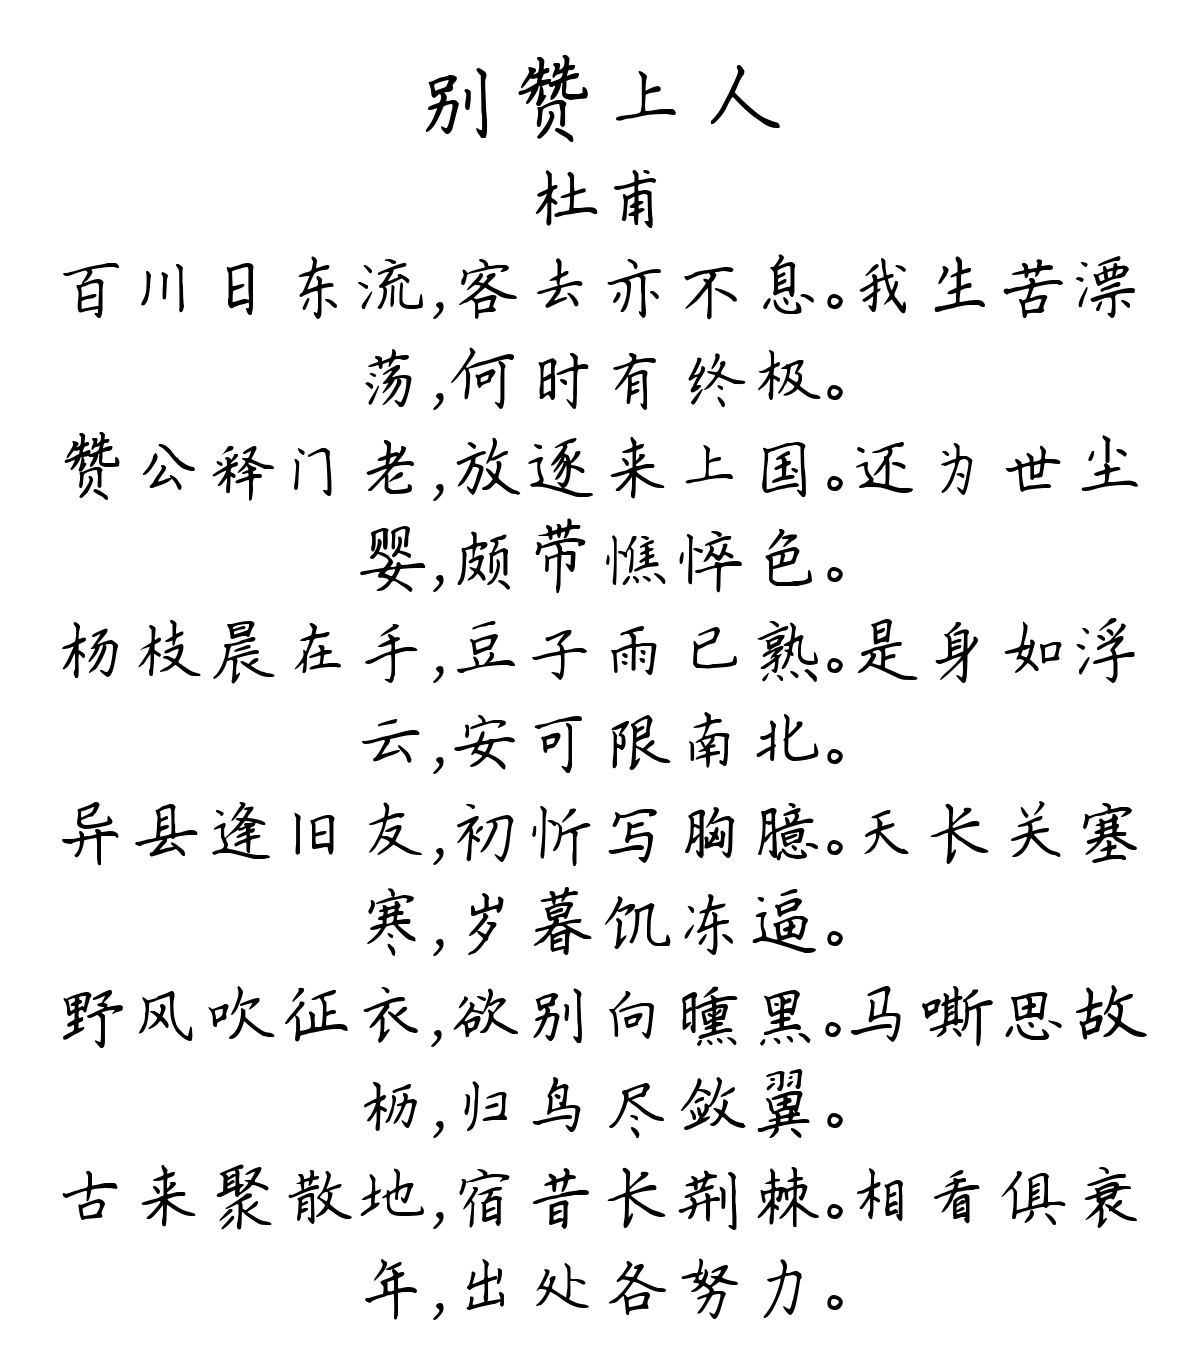 别赞上人
杜甫
百川日东流,客去亦不息。我生苦漂
荡,何时有终极。
赞公释门老,放逐来上国。还为世尘
婴,颇带憔悴色。
杨枝晨在手,豆子雨已熟。是身如浮
云,安可限南北。
异县逢旧友,初忻写胸臆。天长关塞
寒,岁暮饥冻逼。
野风吹征衣,欲别向曛黑。马嘶思故
枥,归鸟尽敛翼。
古来聚散地,宿昔长荆棘。相看俱衰
年,出处各努力。